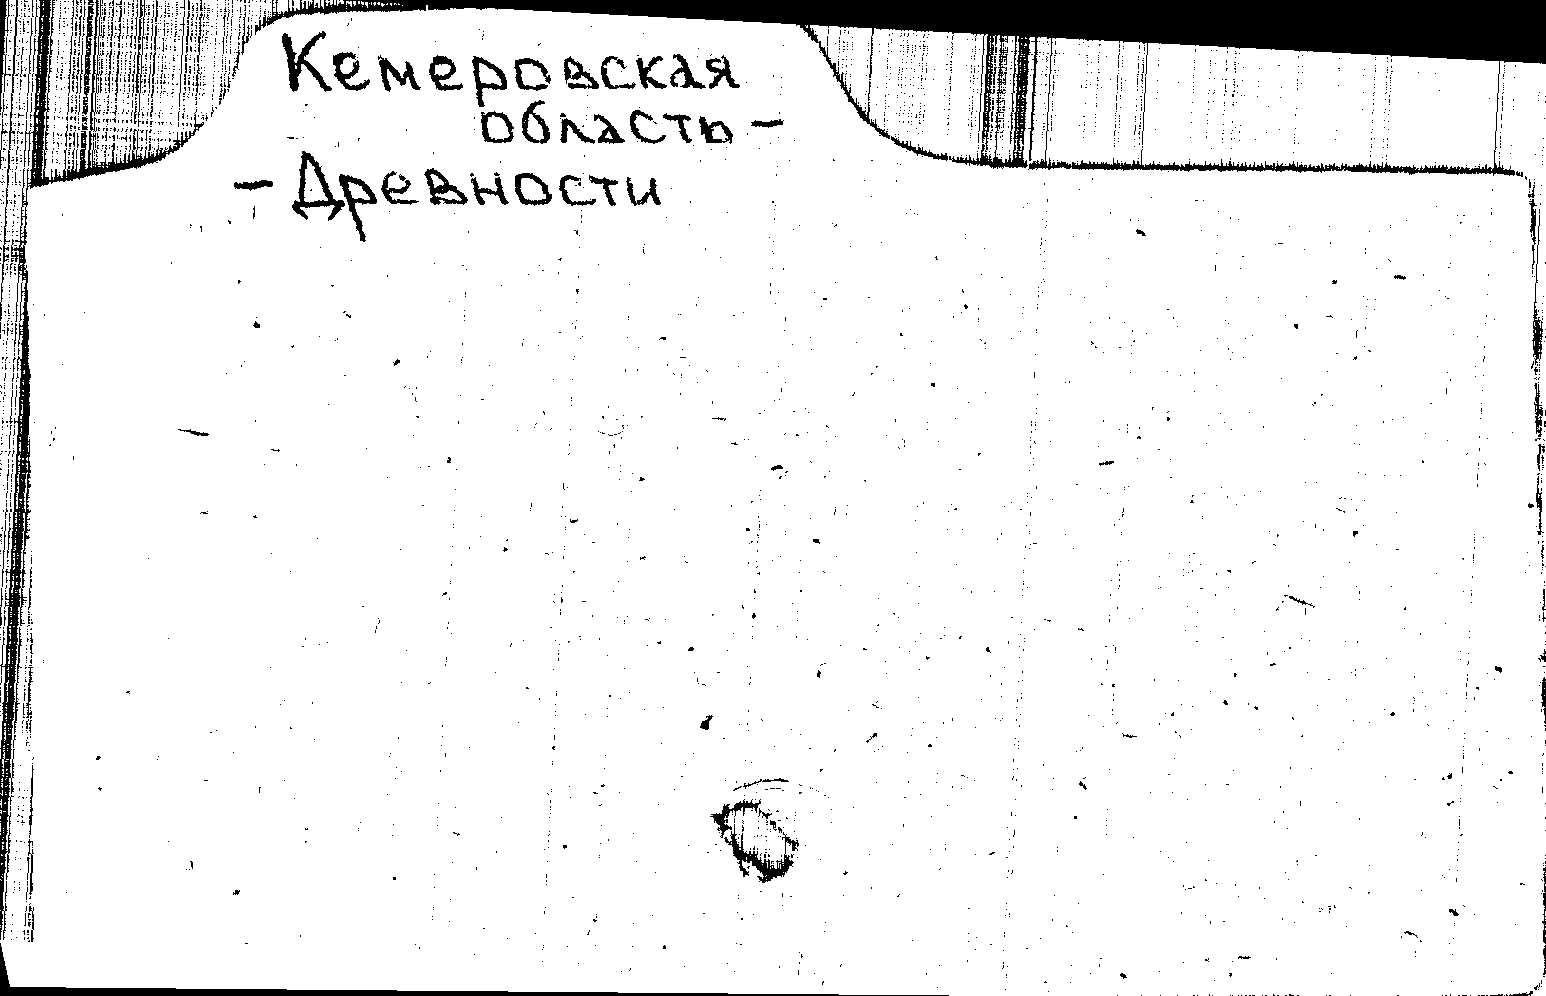 Кемеровская
область –
– Древности